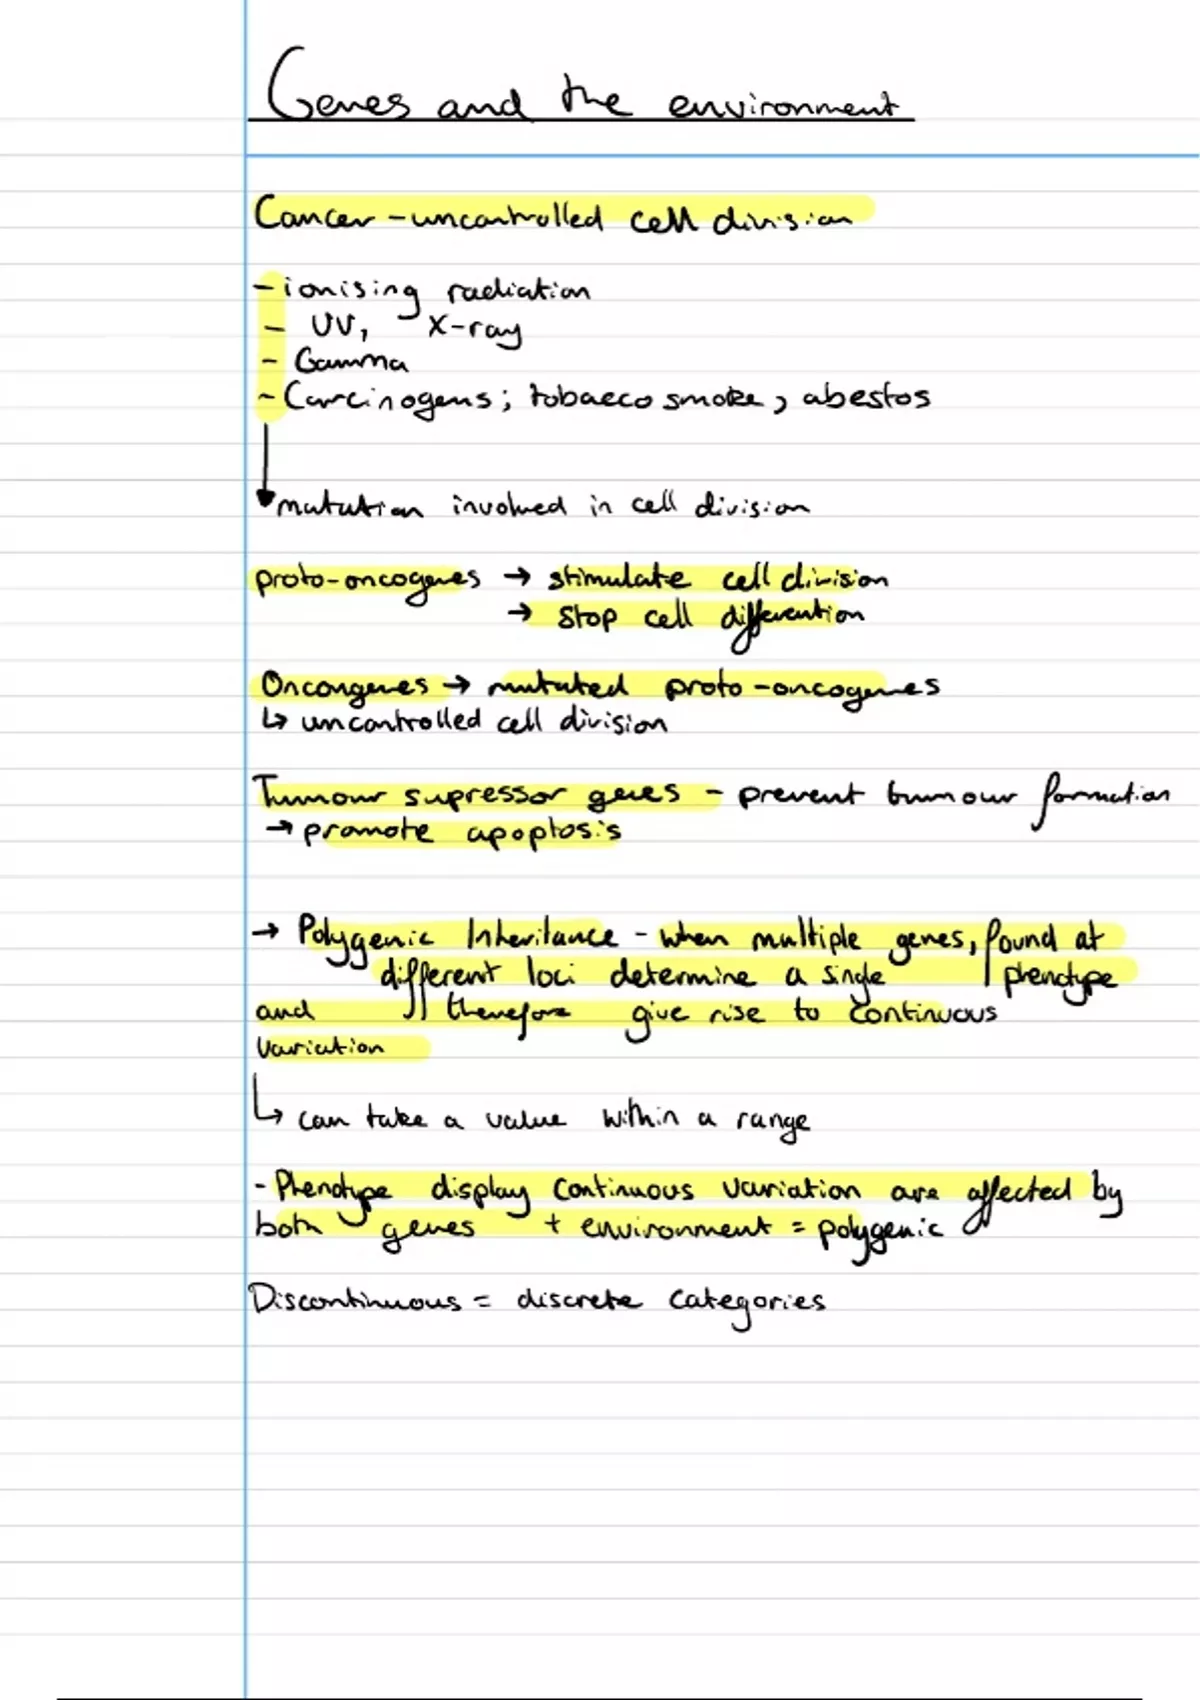 Genes and the environment
Cancer - uncontrolled cell division
- ionising radiation
- UV, X-ray
- Gamma
- Carcinogens; tobacco smoke, abestos
mutation involved in cell division
proto-oncogenes → stimulate cell division
→ stop cell differention
Oncongenes → mutated proto-oncogenes
↳ uncontrolled cell division
Tumour supressor genes - prevent tumour formation
→ promote apoptosis
→ Polygenic Inheritance - when multiple genes, found at
different loci determine a single phenotype
and therefore give rise to continuous
variation
↳ can take a value within a range
- Phenotype display continuous variation are affected by
both genes + environment = polygenic
Discontinuous = discrete categories